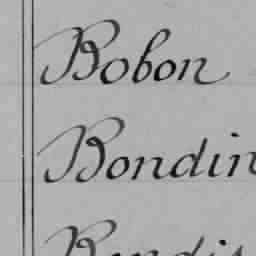 Bobon
Bondin